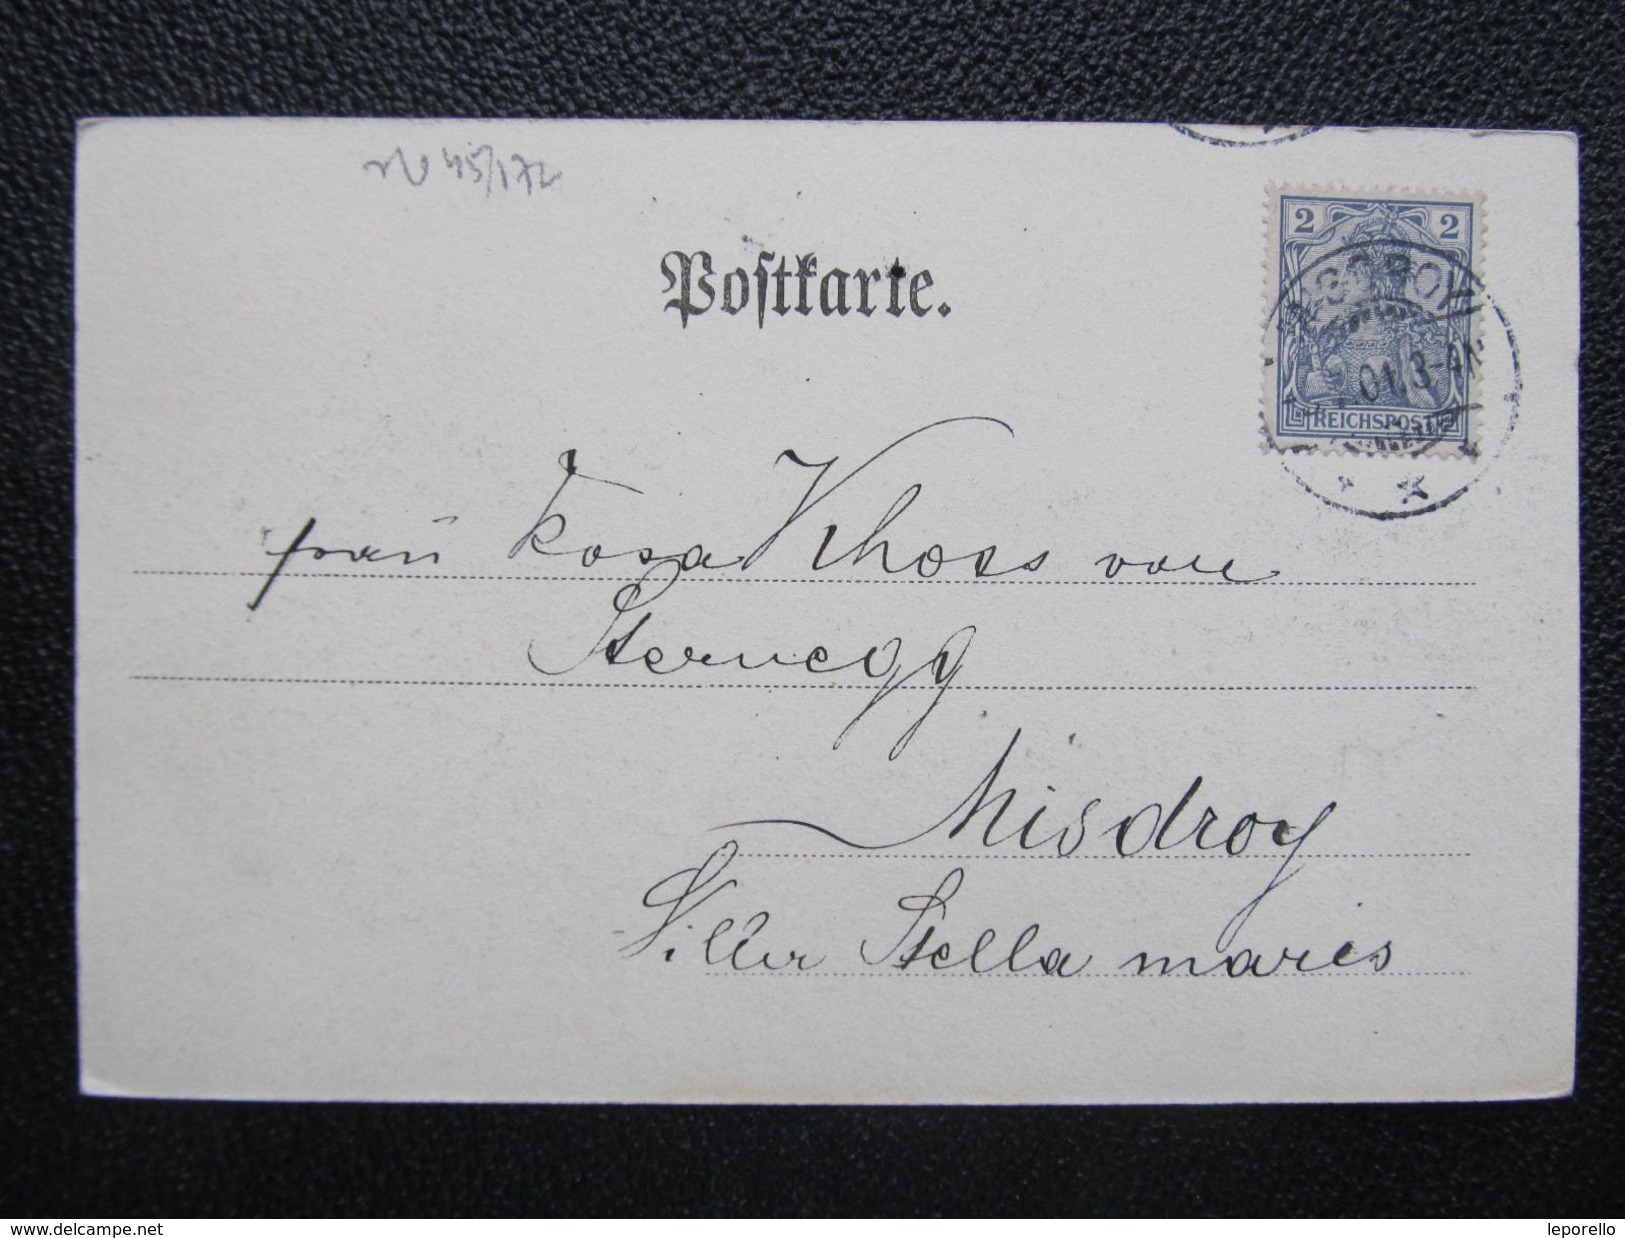 45/172
Postkarte.
2 2
REICHSPOST
01. 3-4N
Frau Rosa Khoss von
Sternegg
Misdroy
Villa Stella maris
www.delcampe.net
leporello